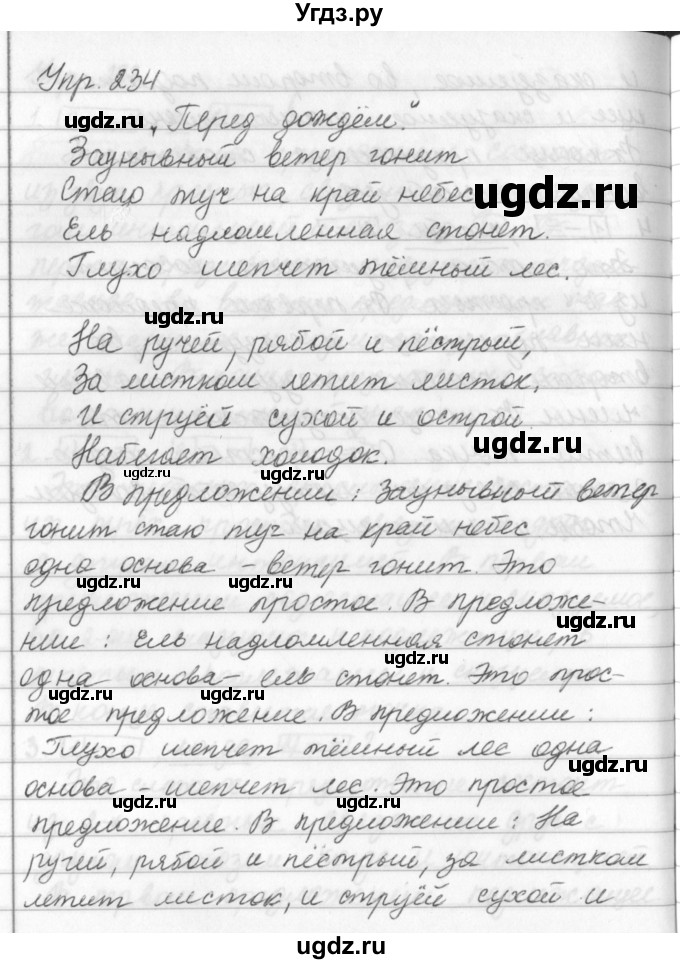 Угдз.ру
Упр. 234
ugdz.ru „Перед дождём".
Заунывный ветер гонит
Стаю туч на край небес ugdz.ru
Ель надломленная стонет.
Глухо шепчет тёмный лес.
ugdz.ru
На ручей, рябой и пёстрый,
За листком летит листок,
И струёй сухой и острой
ugdz.ru
Набегает холодок.
ugdz.ru ugdz.ru
В предложении: Заунывный ветер
гонит стаю туч на край небес
одна основа – ветер гонит. Это
ugdz.ru ugdz.ru
предложение простое. В предложе-
нии: Ель надломленная стонет
ugdz.ru
одна основа – ель стонет. Это прос-
ugdz.ru ugdz.ru
тое предложение. В предложении:
Глухо шепчет тёмный лес одна
основа – шепчет лес. Это простое
ugdz.ru ugdz.ru
предложение. В предложении: На
ручей, рябой и пёстрый, за листком
летит листок, и струёй сухой и
ugdz.ru